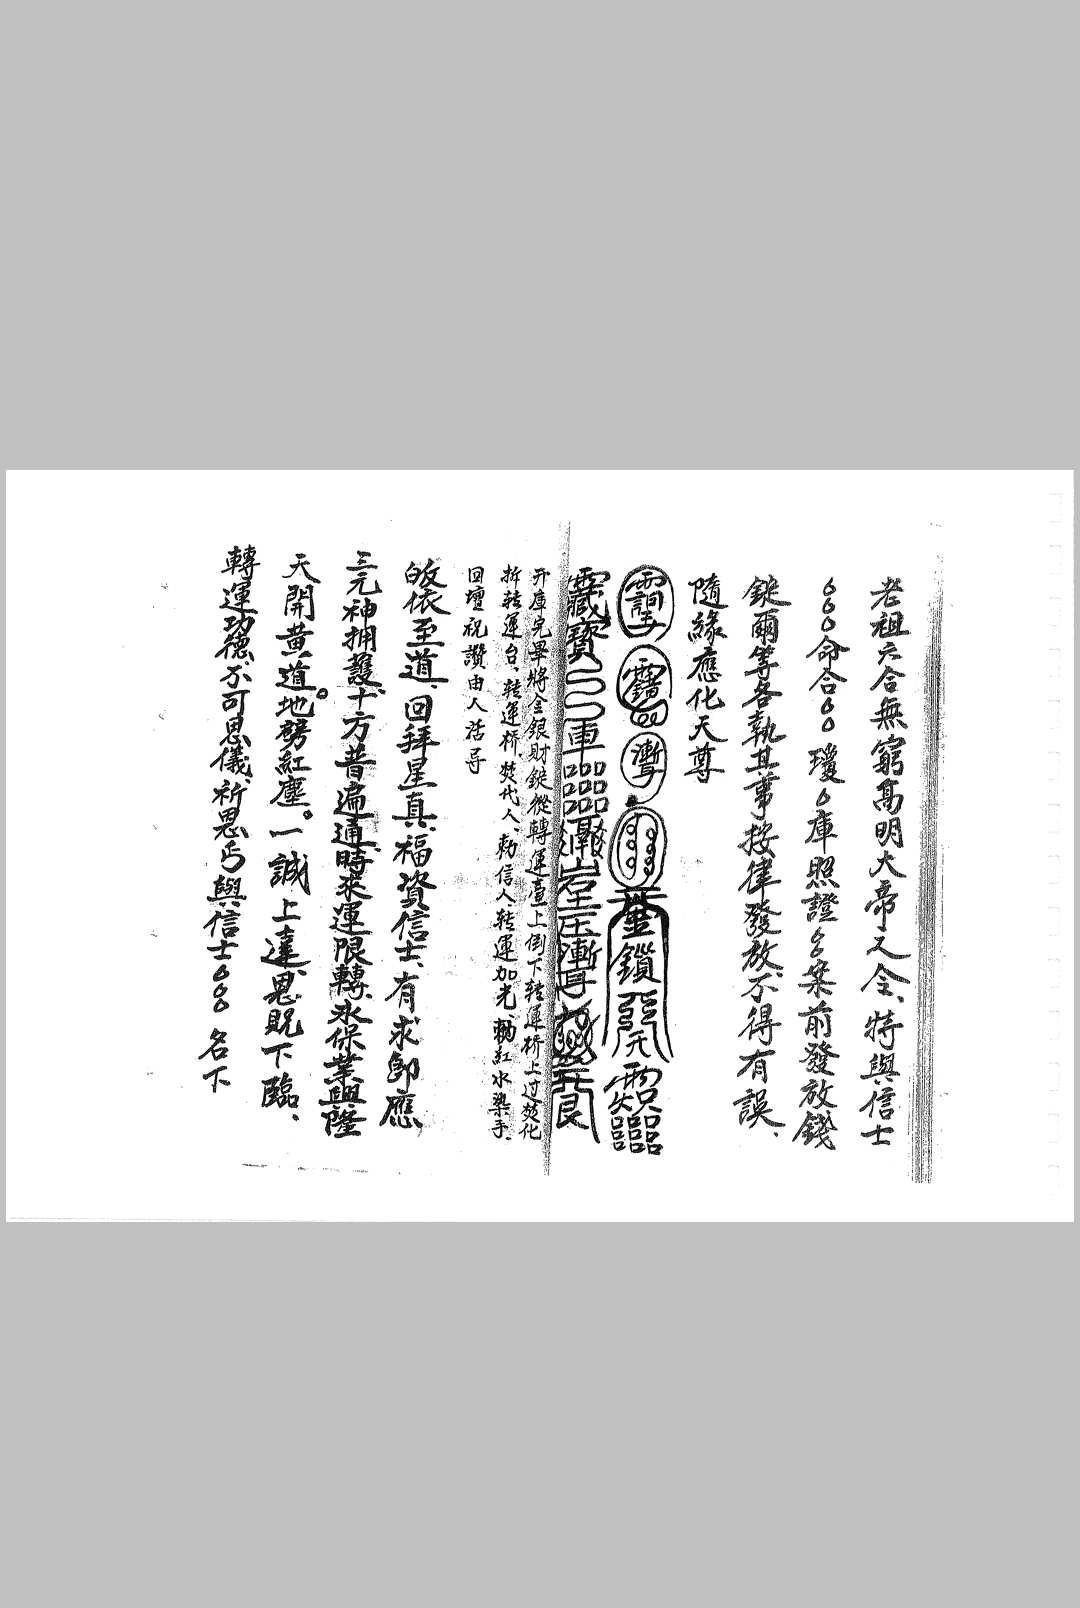 老祖六合無窮高明大帝又令、特與信士
〇〇〇命合〇〇瓊〇庫照證〇〇案前發放錢
錠爾等各執其事按律發放、不得有誤、
隨緣應化天尊
金鎖開天
藏寶
庫
开庫完畢將金銀財錠從轉運臺上倒下转運桥上过焚化
拆转運台、转運桥、焚代人、勅信人转運加光、勅紅水染手、
回壇祝讚由人活导
皈依至道、回拜星真、福資信士、有求卽應、
三元神拥護、十方普遍通、時來運限轉、永保業興隆
天開黄道。地劈紅塵。一誠上達、恩貺下臨、
轉運功德、不可思儀、祈恩丐與信士〇〇〇名下